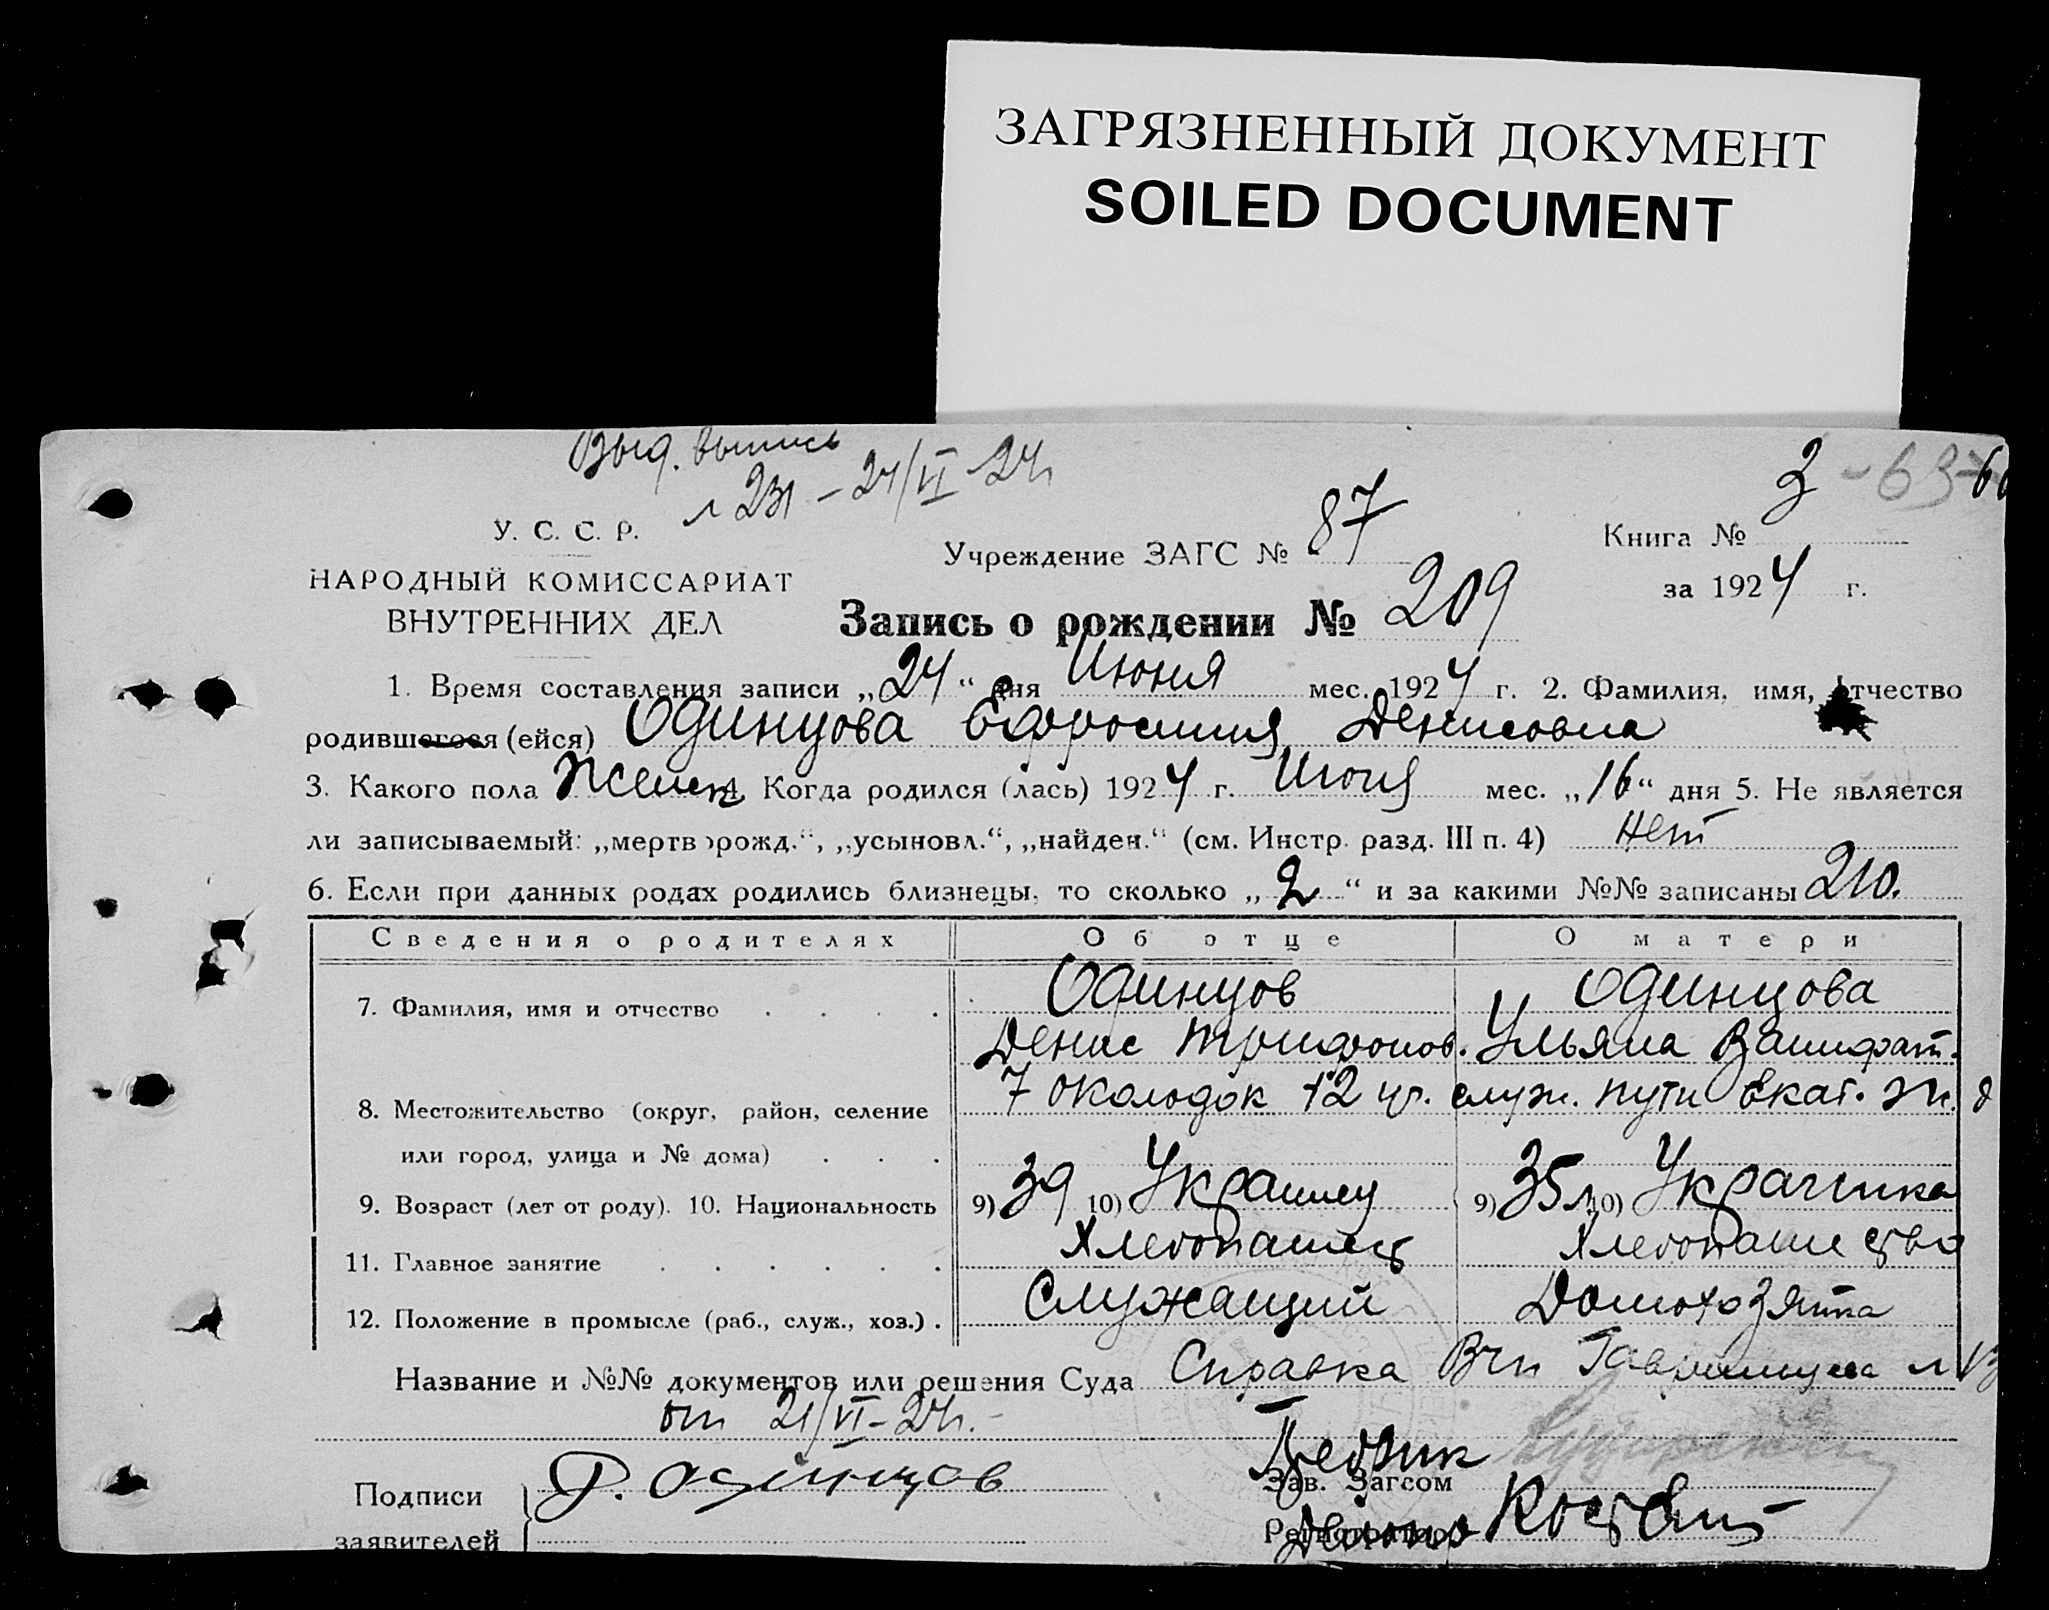 ЗАГРЯЗНЕННЫЙ ДОКУМЕНТ
SOILED DOCUMENT
Выд. выпись
3 - 63-
№ 231 - 24/VI-24г
У. С. С. Р.
Учреждение ЗАГС № 87
Книга №
НАРОДНЫЙ КОМИССАРИАТ
за 1924 г.
ВНУТРЕННИХ ДЕЛ
Запись о рождении № 209
1. Время составления записи „24“ дня Июня мес. 1924 г. 2. Фамилия, имя, отчество
родившегося (ейся) Одинцова Ефросиния Денисовна
3. Какого пола Женск 4. Когда родился (лась) 1924 г. Июня мес. „16“ дня 5. Не является
ли записываемый: „мертворожд.“, „усыновл.“, „найден.“ (см. Инстр. разд. III п. 4) Нет
6. Если при данных родах родились близнецы, то сколько „2“ и за какими №№ записаны 210.
Сведения о родителях Об отце О матери
7. Фамилия, имя и отчество Одинцов Одинцова
Денис Трифонов. Ульяна
8. Местожительство (округ, район, селение 7 околодок 12 уч. служ. пути Екат. ж. д
или город, улица и № дома)
9. Возраст (лет от роду). 10. Национальность 9) 39 10) Украинец 9) 35 л 10) Украинка
11. Главное занятие Хлебопашец Хлебопашество
12. Положение в промысле (раб., служ., хоз.) Служащий Домохозяйка
Название и №№ документов или решения Суда Справка
от 21/VI-24г.
Подписи
заявителей
Одинцов
Зав. Загсом
Регистратор